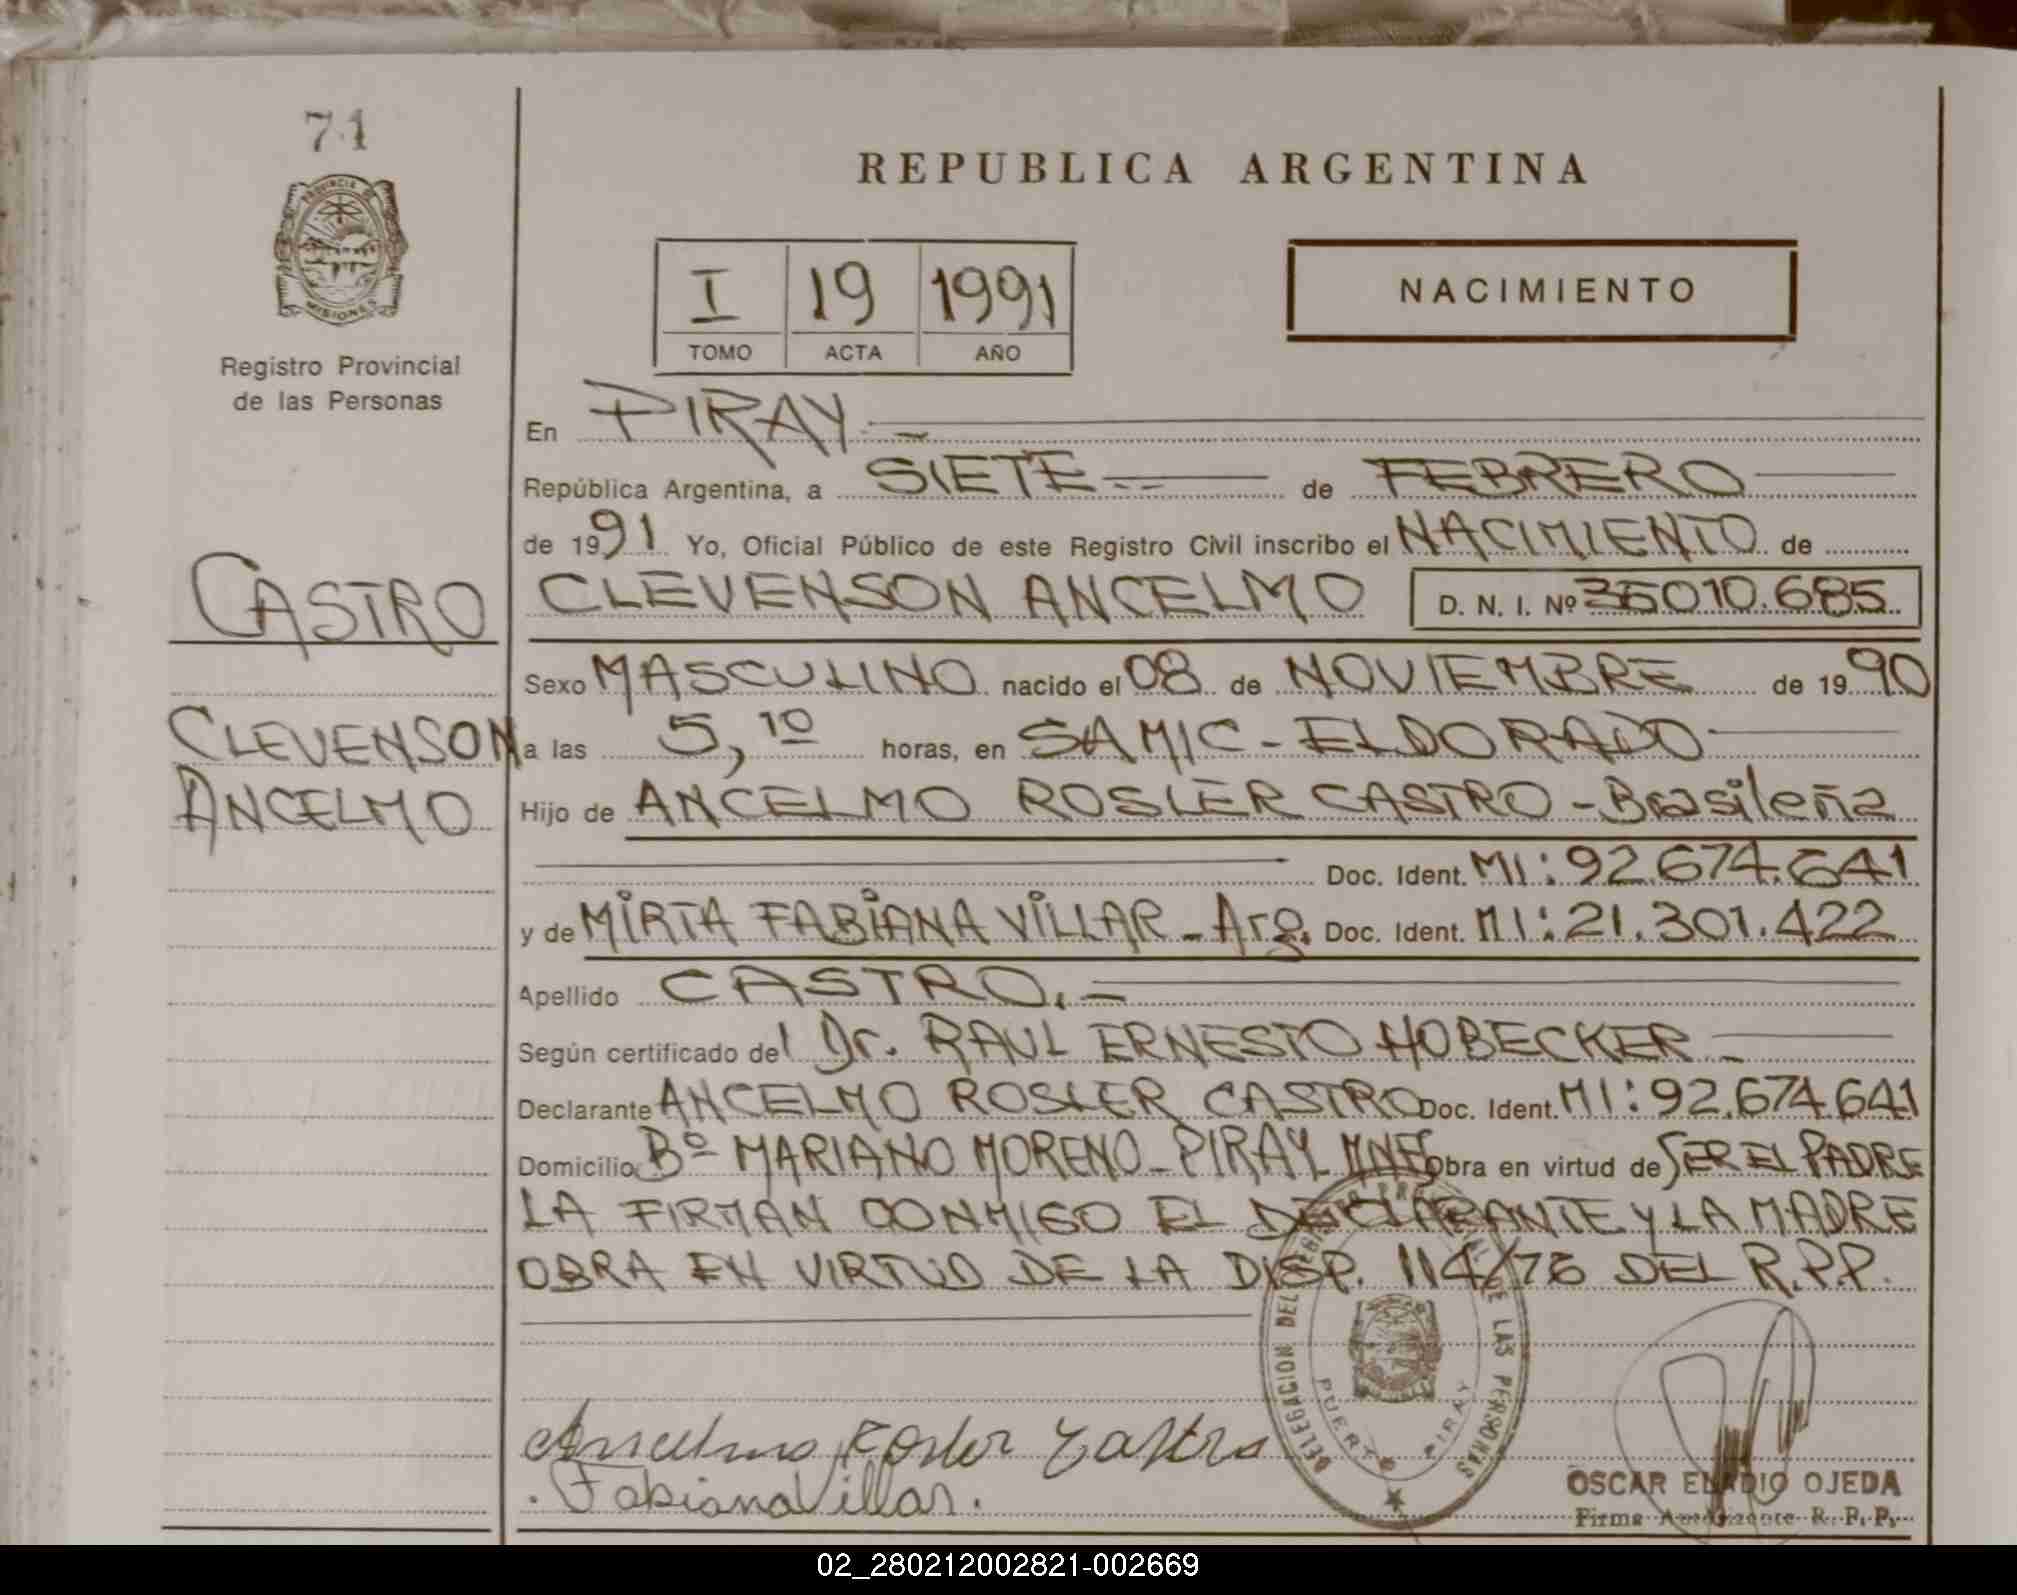 71
PROVINCIA DE
MISIONES
Registro Provincial
de las Personas
CASTRO
CLEVENSON
ANCELMO
REPUBLICA ARGENTINA
I 19 1991
TOMO ACTA AÑO
NACIMIENTO
En PIRAY.-
República Argentina, a SIETE de FEBRERO
de 1991 Yo, Oficial Público de este Registro Civil inscribo el NACIMIENTO de
CLEVENSON ANCELMO D. N. I. Nº 36010.685
Sexo MASCULINO nacido el 08 de NOVIEMBRE de 1990
a las 5,10 horas, en SAMIC - ELDORADO
Hijo de ANCELMO ROSLER CASTRO - Brasileña
Doc. Ident. MI: 92.674.641
y de MIRTA FABIANA VILLAR - Arg. Doc. Ident. MI: 21.301.422
Apellido CASTRO.-
Según certificado del Dr. RAUL ERNESTO HOBECKER -
Declarante ANCELMO ROSLER CASTRO Doc. Ident. MI: 92.674.641
Domicilio Bº MARIANO MORENO - PIRAY MNES Obra en virtud de SER EL PADRE
LA FIRMAN CONMIGO EL DECLARANTE Y LA MADRE
OBRA EN VIRTUD DE LA DISP. 114/76 DEL R.P.P.
DELEGACION DEL REGISTRO PROVINCIAL DE LAS PERSONAS
PUERTO PIRAY
Ancelmo Rosler Castro
Fabiana Villar.
OSCAR ELADIO OJEDA
Firma Autorizante R. P. P.
02_280212002821-002669